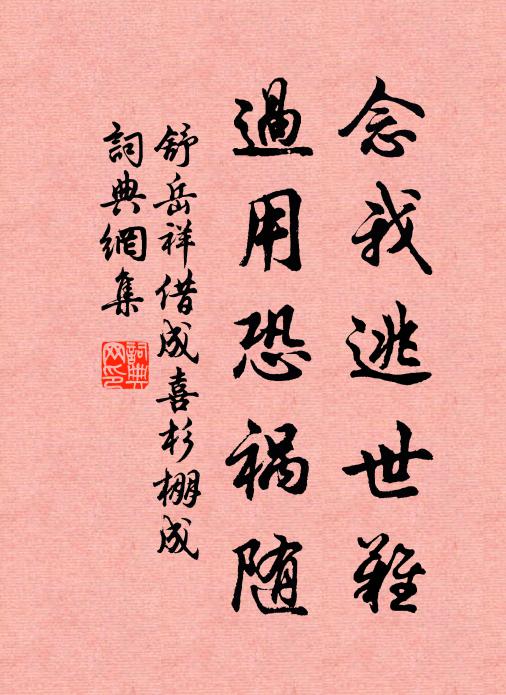 念我逃世難
過用恐禍随
舒岳祥借成喜杉棚成
詞典網集
詞典网印